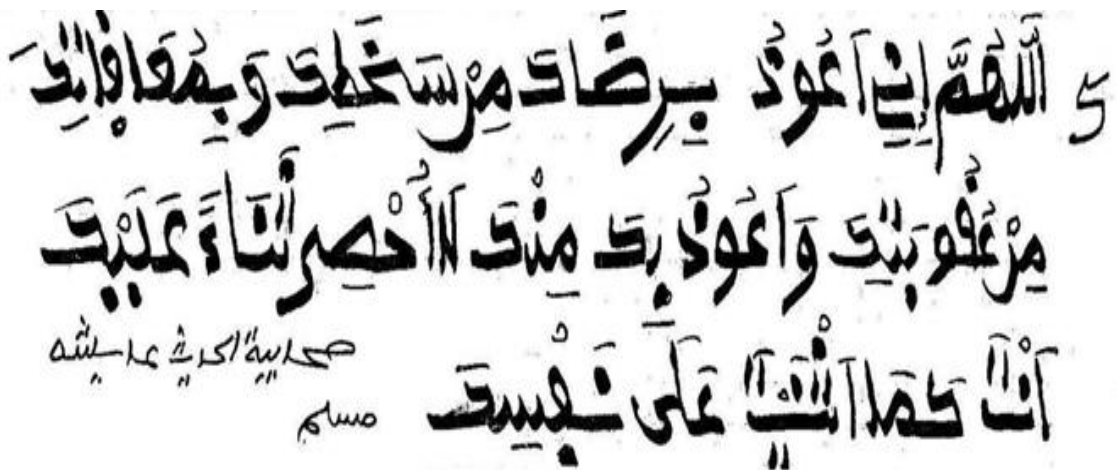 5 اَللَّهُمَّ إِنِّي اَعُوذُ بِرِضَاكَ مِنْ سَخَطِكَ وَبِمُعَافَاتِكَ
مِنْ عُقُوبَتِكَ وَاَعُوذُ بِكَ مِنْكَ لَا أُحْصِي ثَنَاءً عَلَيْكَ
اَنْتَ كَمَا اَثْنَيْتَ عَلَى نَفْسِكَ
صحابية الحديث عايشه
مسلم